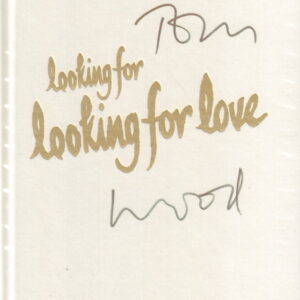 Tom
looking for
looking for love
Wood